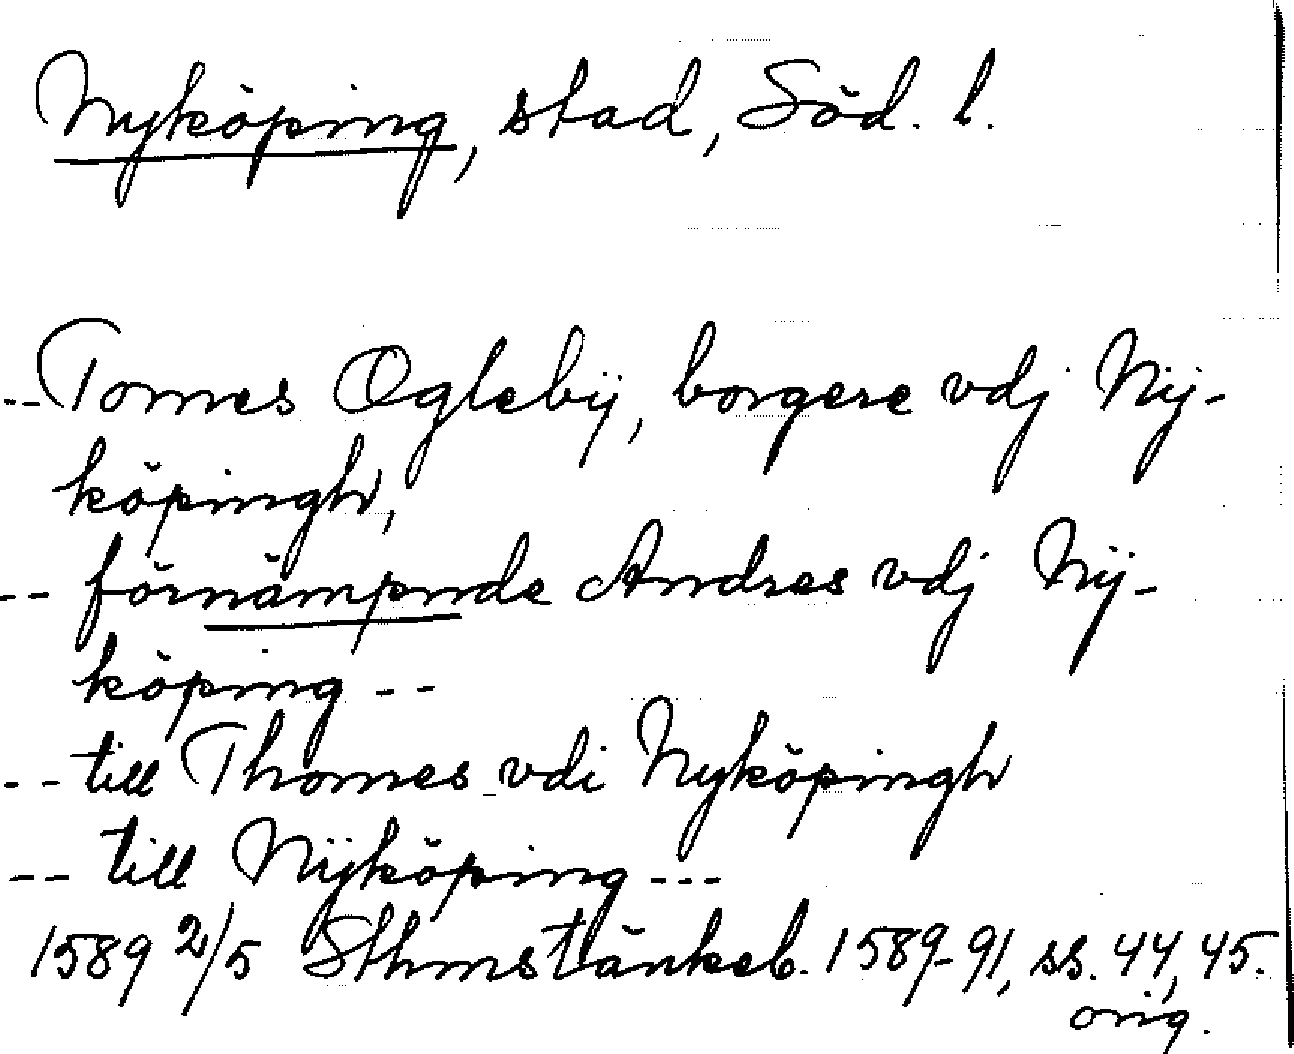 Nyköping, stad, Söd. l.
-- Tomes Oglebÿ, borgere vdj Nÿ-
köpingh,
-- förnämpnde Andres vdj Nÿ-
köping --
-- till Thomes vdi Nyköpingh
-- till Nÿköping ---
1589 2/5 Sthmstänkeb. 1589-91, ss. 44, 45.
orig.